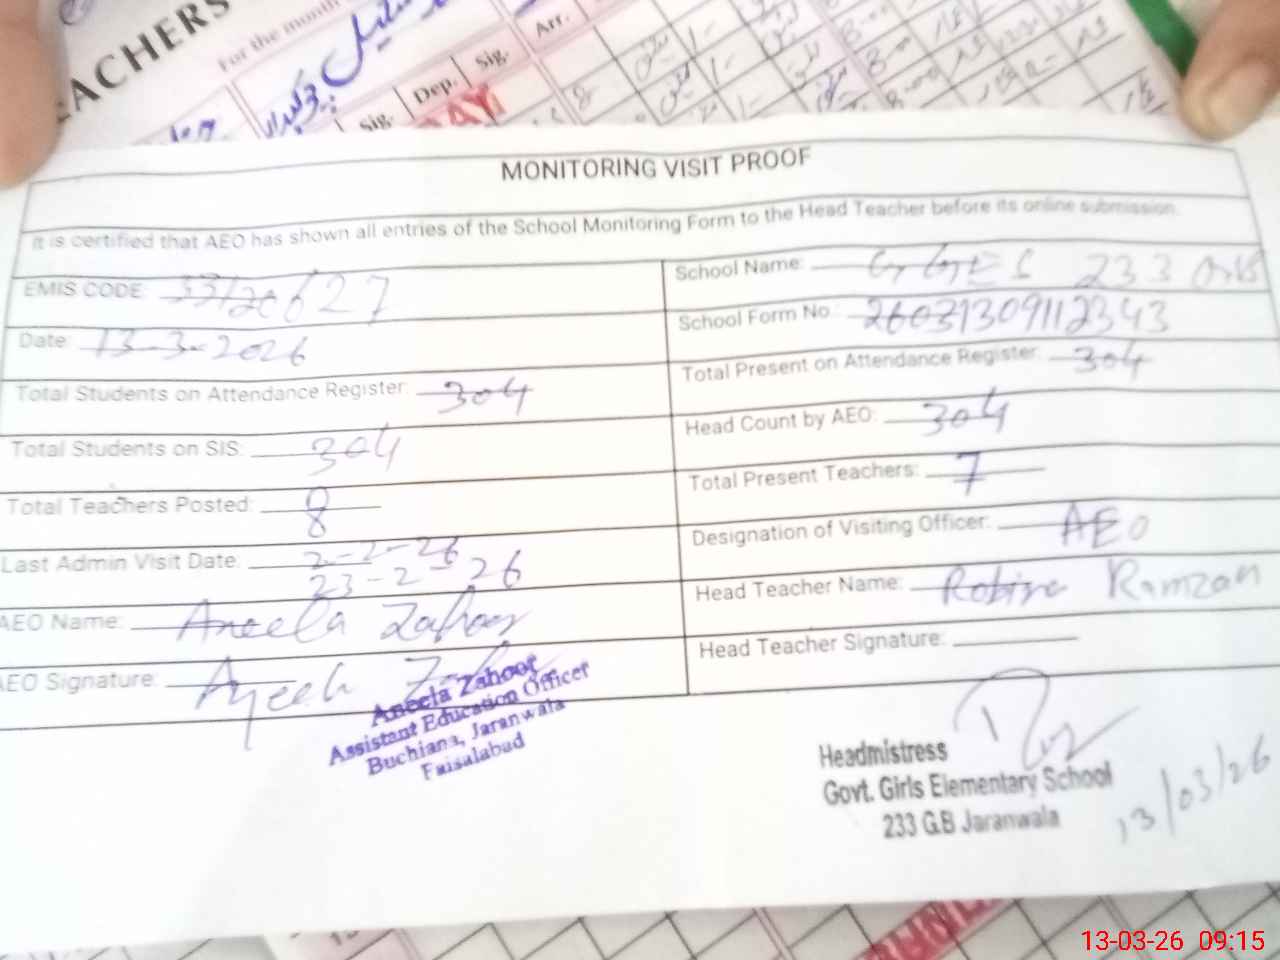 EACHERS
For the month
Sig.
Dep.
Sig.
Arr.
MONITORING VISIT PROOF
It is certified that AEO has shown all entries of the School Monitoring Form to the Head Teacher before its online submission.
EMIS CODE: 33120627
School Name: GGES 233 GB
Date: 13-3-2026
School Form No.: 26031309112343
Total Students on Attendance Register: 304
Total Present on Attendance Register: 304
Total Students on SIS: 304
Head Count by AEO: 304
Total Teachers Posted: 8
Total Present Teachers: 7
Last Admin Visit Date: 2-2-26
23-2-26
Designation of Visiting Officer: AEO
AEO Name: Aneela Zahoor
Head Teacher Name: Robina Ramzan
AEO Signature:
Head Teacher Signature:
Aneela Zahoor
Assistant Education Officer
Buchiana, Jaranwala
Faisalabad
Headmistress
Govt. Girls Elementary School
233 G.B Jaranwala
13/03/26
13-03-26 09:15